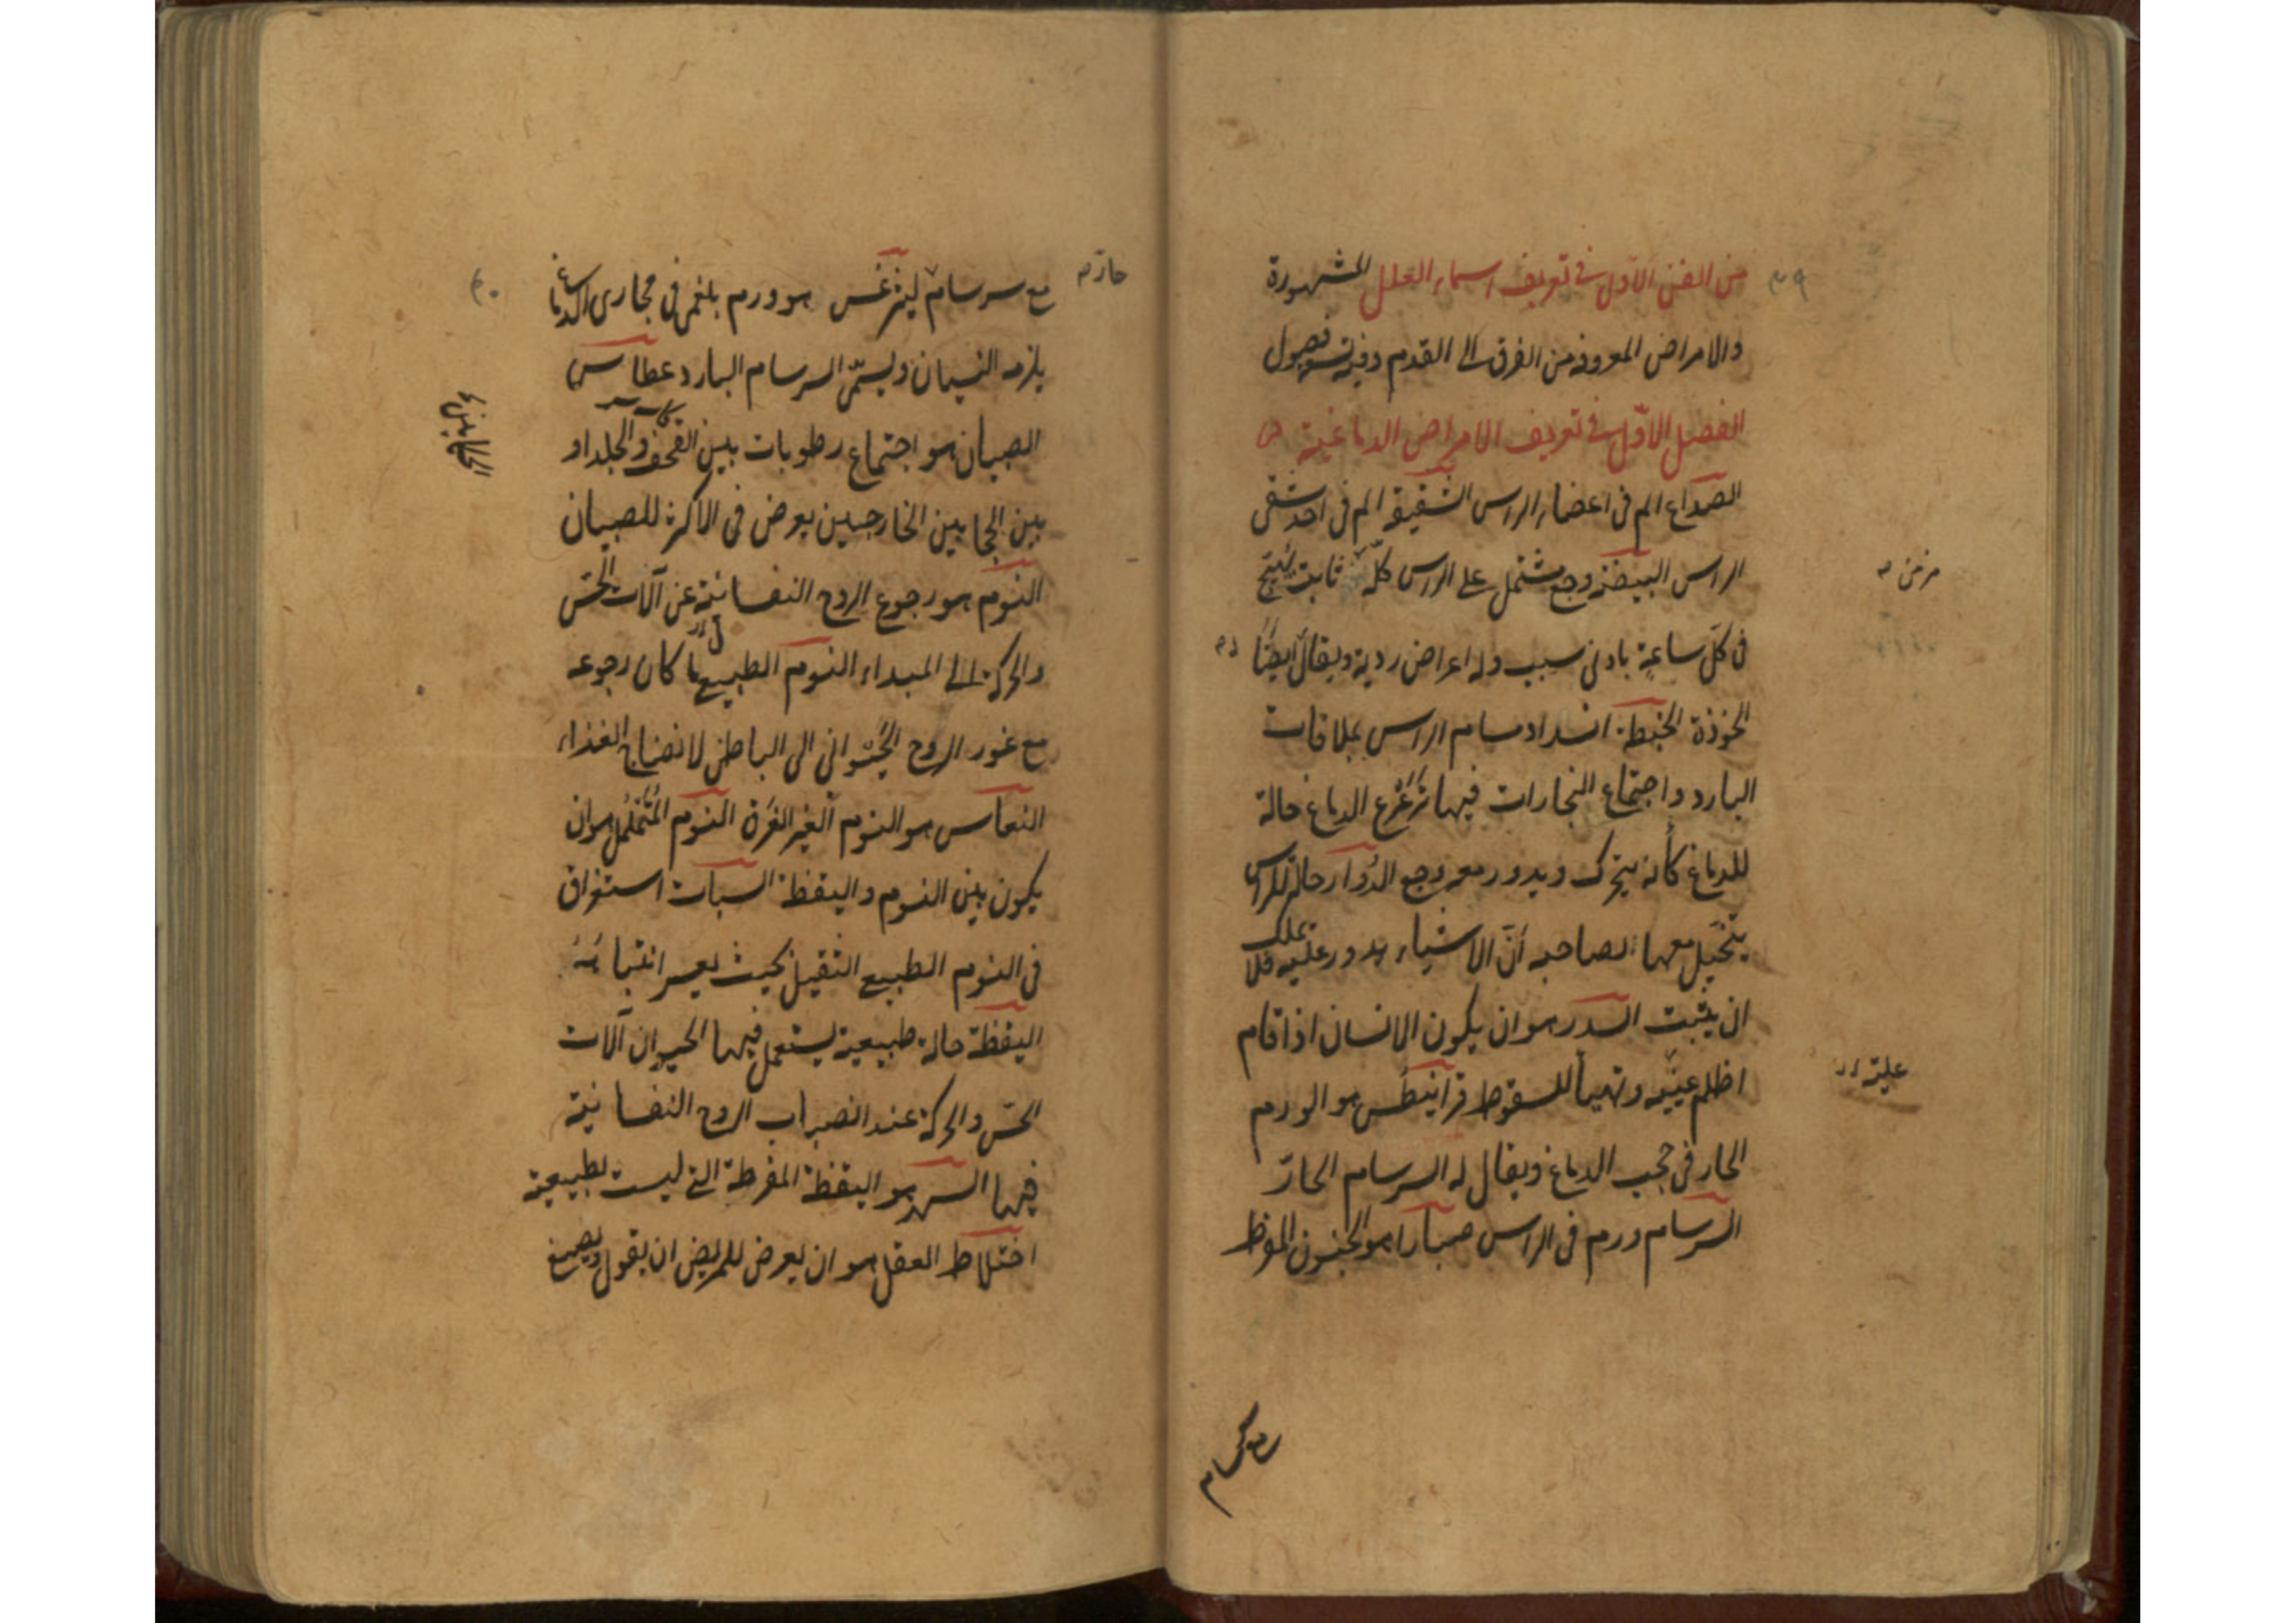 من الفن الاول فی تعریف اسماء العلل المشهورة
والامراض المعروفة من الفرق الی القدم وفیه فصول
الفصل الاوّل فی تعریف الامراض الدماغیة
الصداع الم فی اعضاء الراس الشقیقة الم فی احد شقی
الراس البیضة وجع مشتمل علی الراس کلّه ثابت یهیج
مزمن
فی کلّ ساعةٍ بادنی سبب وله اعراض ردیة ویقال ایضًا
الخوذة الخبطة انسداد مسام الراس بملاقات
البارد واجتماع البخارات فیها تزعزع الدماغ حالة
للدماغ کأنه یتحرک ویدور معه وجع الدُوار حالة للراس
یتخیّل معها لصاحبه أنّ الاشیاء یدور علیه فلا یملک
ان یثبت السدر هو ان یکون الانسان اذا قام
اظلم عینیه وتهیأ للسقوط قرانیطس هو الورم
علیة
الحار فی حجب الدماغ ویقال له السرسام الحارّ
السرسام ورم فی الراس صبارا هو الجنون المفرط
مع سرسام
حارّ
مع سرسام لیثرغس هو ورم بلغمی فی مجاری الدماغ
یلزمه النسیان ویسمّی السرسام البارد عطاس
الصبیان هو اجتماع رطوبات بین القحف والجلد او
بین الحجابین الخارجین یعرض فی الاکثر للصبیان
النوم هو رجوع الروح النفسانیة عن آلات الحسّ
والحرکة الی المبداء النوم الطبیع ما کان رجوعه
مع غور الروح الحیوانی الی الباطن لانضاج الغذاء
النعاس هو النوم الغیر الغرق النوم المتململ هو ان
یکون بین النوم والیقظة السبات استغراق
فی النوم الطبیع الثقیل بحیث یعسر انتباهُهُ
الیقظة حالة طبیعیة یستعمل فیها الحیوان آلات
الحسّ والحرکة عند انصباب الروح النفسانیة
فیها السهر هو الیقظة المفرطة التی لیست بطبیعیة
اختلاط العقل هو ان یعرض للمریض ان یقول ویصیغ